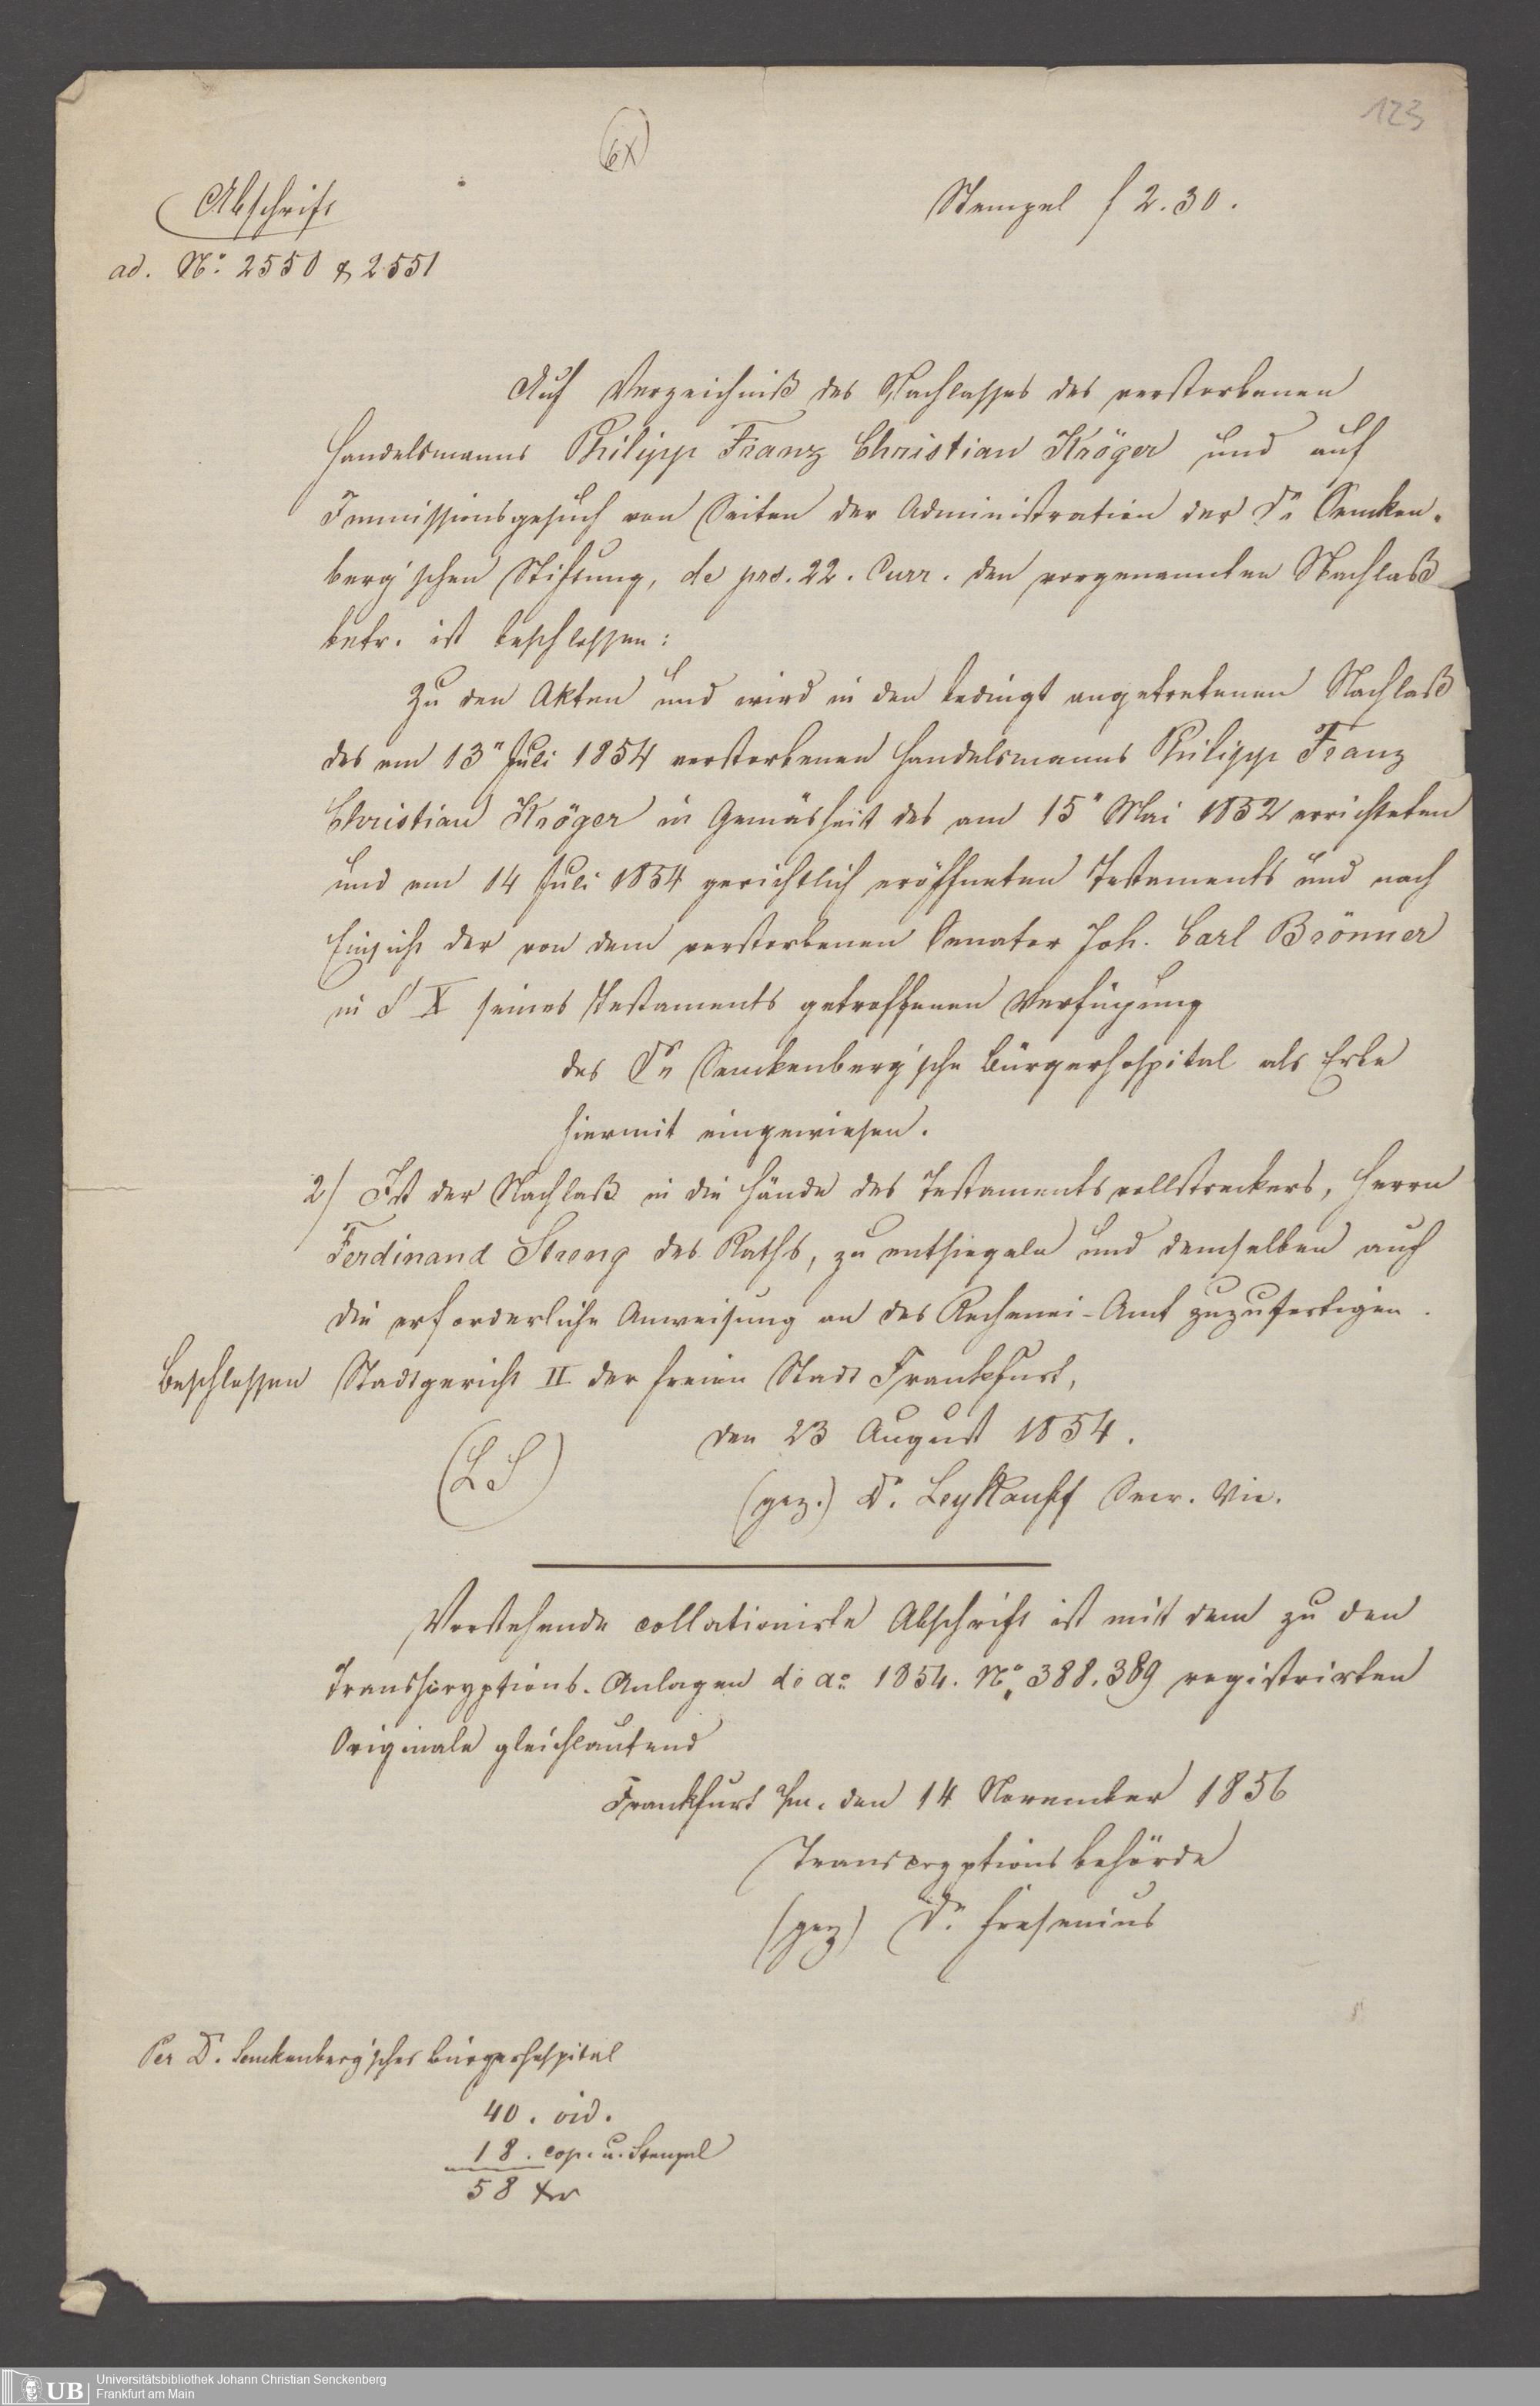 123
6x
Abschrift
Stempel f 2.30.
ad. No. 2550 & 2551
Auf Verzeichniß des Nachlasses des verstorbenen
Handelsmanns Philipp Franz Christian Kröger und auf
Immissionsgesuch von Seiten der Administration der Dr. Sencken-
berg'schen Stiftung, de prs. 22. Curr. den vorgenannten Nachlaß
betr. ist beschlossen:
Zu den Akten und wird in den bedingt angetretenen Nachlaß
des am 13n Juli 1854 verstorbenen Handelsmanns Philipp Franz
Christian Kröger in Gemäsheit des am 15n Mai 1852 errichteten
und am 14 Juli 1854 gerichtlich eröffneten Testaments und nach
Einsicht der von dem verstorbenen Senator Joh. Carl Brönner
in § X seines Testaments getroffenen Verfügung
das Dr. Senckenberg'sche Bürgerhospital als Erbe
hiermit eingewiesen.
2) Ist der Nachlaß in die Hände des Testamentsvollstreckers, Herrn
Ferdinand Streng des Raths, zu entsiegeln und demselben auch
die erforderliche Anweisung an das Rechenei-Amt zuzufertigen.
Beschlossen Stadtgericht II der freien Stadt Frankfurt,
den 23 August 1854.
(LS)
(gez.) Dr. Leykauff Secr. Vic.
Vorstehende collationirte Abschrift ist mit dem zu den
Transscryptions-Anlagen de ao. 1854. No. 388.389 registrirten
Originale gleichlautend
Frankfurt a/m. den 14 November 1856
Transcryptionsbehörde
(gez) Dr. Fresenius
Per Dr. Senckenberg'sches Bürgerhospital
40. vid.
18. cop. u. Stempel
58 xr
UB
Universitätsbibliothek Johann Christian Senckenberg
Frankfurt am Main